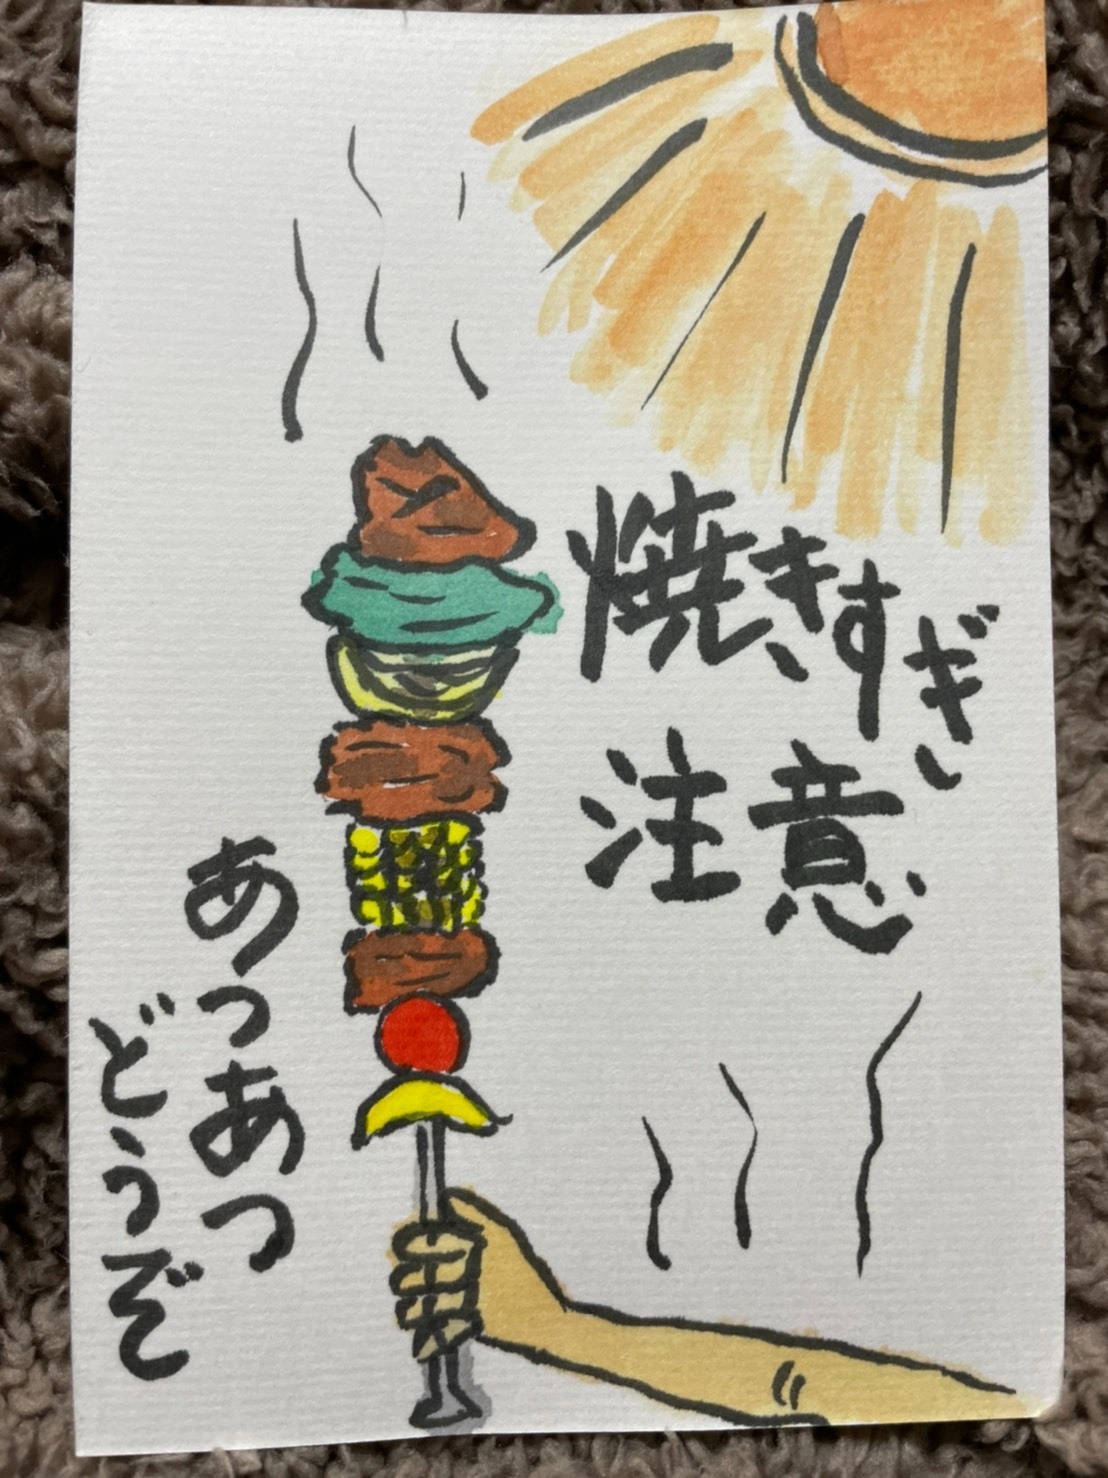 焼きすぎ
注意
あつあつ
どうぞ